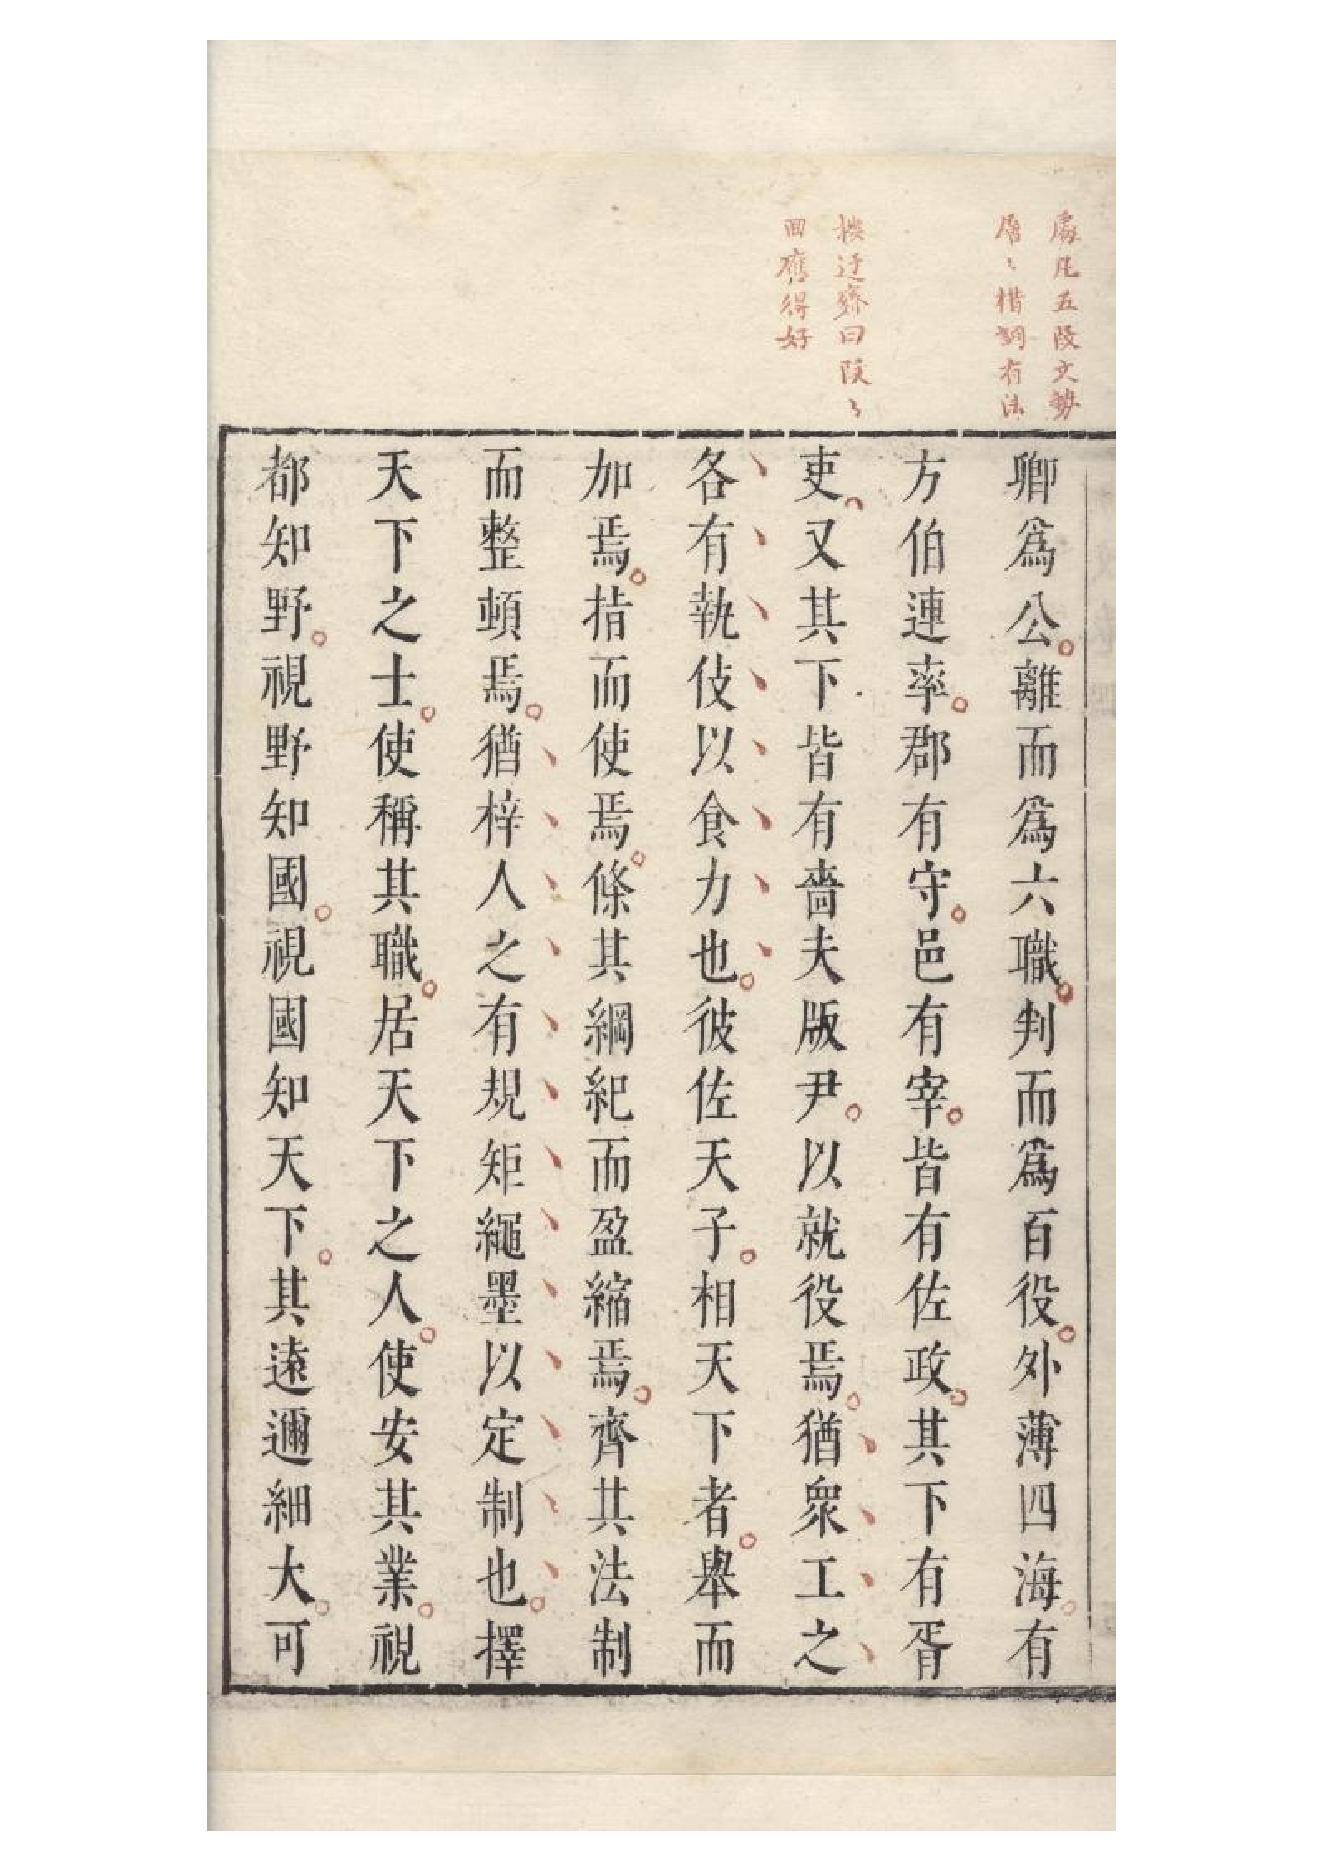 處凡五段文勢
層〻楷調有法
樓迂齋曰段〻
回應得好
卿爲公離而爲六職判而爲百役外薄四海有
方伯連率郡有守邑有宰皆有佐政其下有胥
吏又其下皆有嗇夫版尹以就役焉猶衆工之
各有執伎以食力也彼佐天子相天下者舉而
加焉指而使焉條其綱紀而盈縮焉齊其法制
而整頓焉猶梓人之有規矩繩墨以定制也擇
天下之士使稱其職居天下之人使安其業視
都知野視野知國視國知天下其遠邇細大可